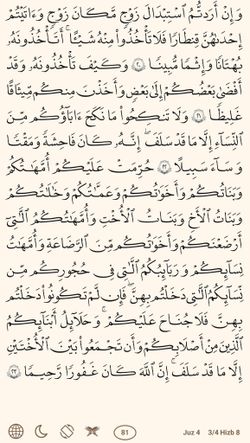 وَإِنْ أَرَدتُّمُ ٱسْتِبْدَالَ زَوْجٍ مَّكَانَ زَوْجٍ وَءَاتَيْتُمْ
إِحْدَىٰهُنَّ قِنطَارًا فَلَا تَأْخُذُوا۟ مِنْهُ شَيْـًٔا ۚ أَتَأْخُذُونَهُۥ
بُهْتَٰنًا وَإِثْمًا مُّبِينًا ٢٠ وَكَيْفَ تَأْخُذُونَهُۥ وَقَدْ
أَفْضَىٰ بَعْضُكُمْ إِلَىٰ بَعْضٍ وَأَخَذْنَ مِنكُم مِّيثَٰقًا
غَلِيظًا ٢١ وَلَا تَنكِحُوا۟ مَا نَكَحَ ءَابَآؤُكُم مِّنَ
ٱلنِّسَآءِ إِلَّا مَا قَدْ سَلَفَ ۚ إِنَّهُۥ كَانَ فَٰحِشَةً وَمَقْتًا
وَسَآءَ سَبِيلًا ٢٢ حُرِّمَتْ عَلَيْكُمْ أُمَّهَٰتُكُمْ
وَبَنَاتُكُمْ وَأَخَوَٰتُكُمْ وَعَمَّٰتُكُمْ وَخَٰلَٰتُكُمْ
وَبَنَاتُ ٱلْأَخِ وَبَنَاتُ ٱلْأُخْتِ وَأُمَّهَٰتُكُمُ ٱلَّٰتِىٓ
أَرْضَعْنَكُمْ وَأَخَوَٰتُكُم مِّنَ ٱلرَّضَٰعَةِ وَأُمَّهَٰتُ
نِسَآئِكُمْ وَرَبَٰٓئِبُكُمُ ٱلَّٰتِى فِى حُجُورِكُم مِّن
نِّسَآئِكُمُ ٱلَّٰتِى دَخَلْتُم بِهِنَّ فَإِن لَّمْ تَكُونُوا۟ دَخَلْتُم
بِهِنَّ فَلَا جُنَاحَ عَلَيْكُمْ وَحَلَٰٓئِلُ أَبْنَآئِكُمُ
ٱلَّذِينَ مِنْ أَصْلَٰبِكُمْ وَأَن تَجْمَعُوا۟ بَيْنَ ٱلْأُخْتَيْنِ
إِلَّا مَا قَدْ سَلَفَ ۗ إِنَّ ٱللَّهَ كَانَ غَفُورًا رَّحِيمًا ٢٣
81 Juz 4 3/4 Hizb 8